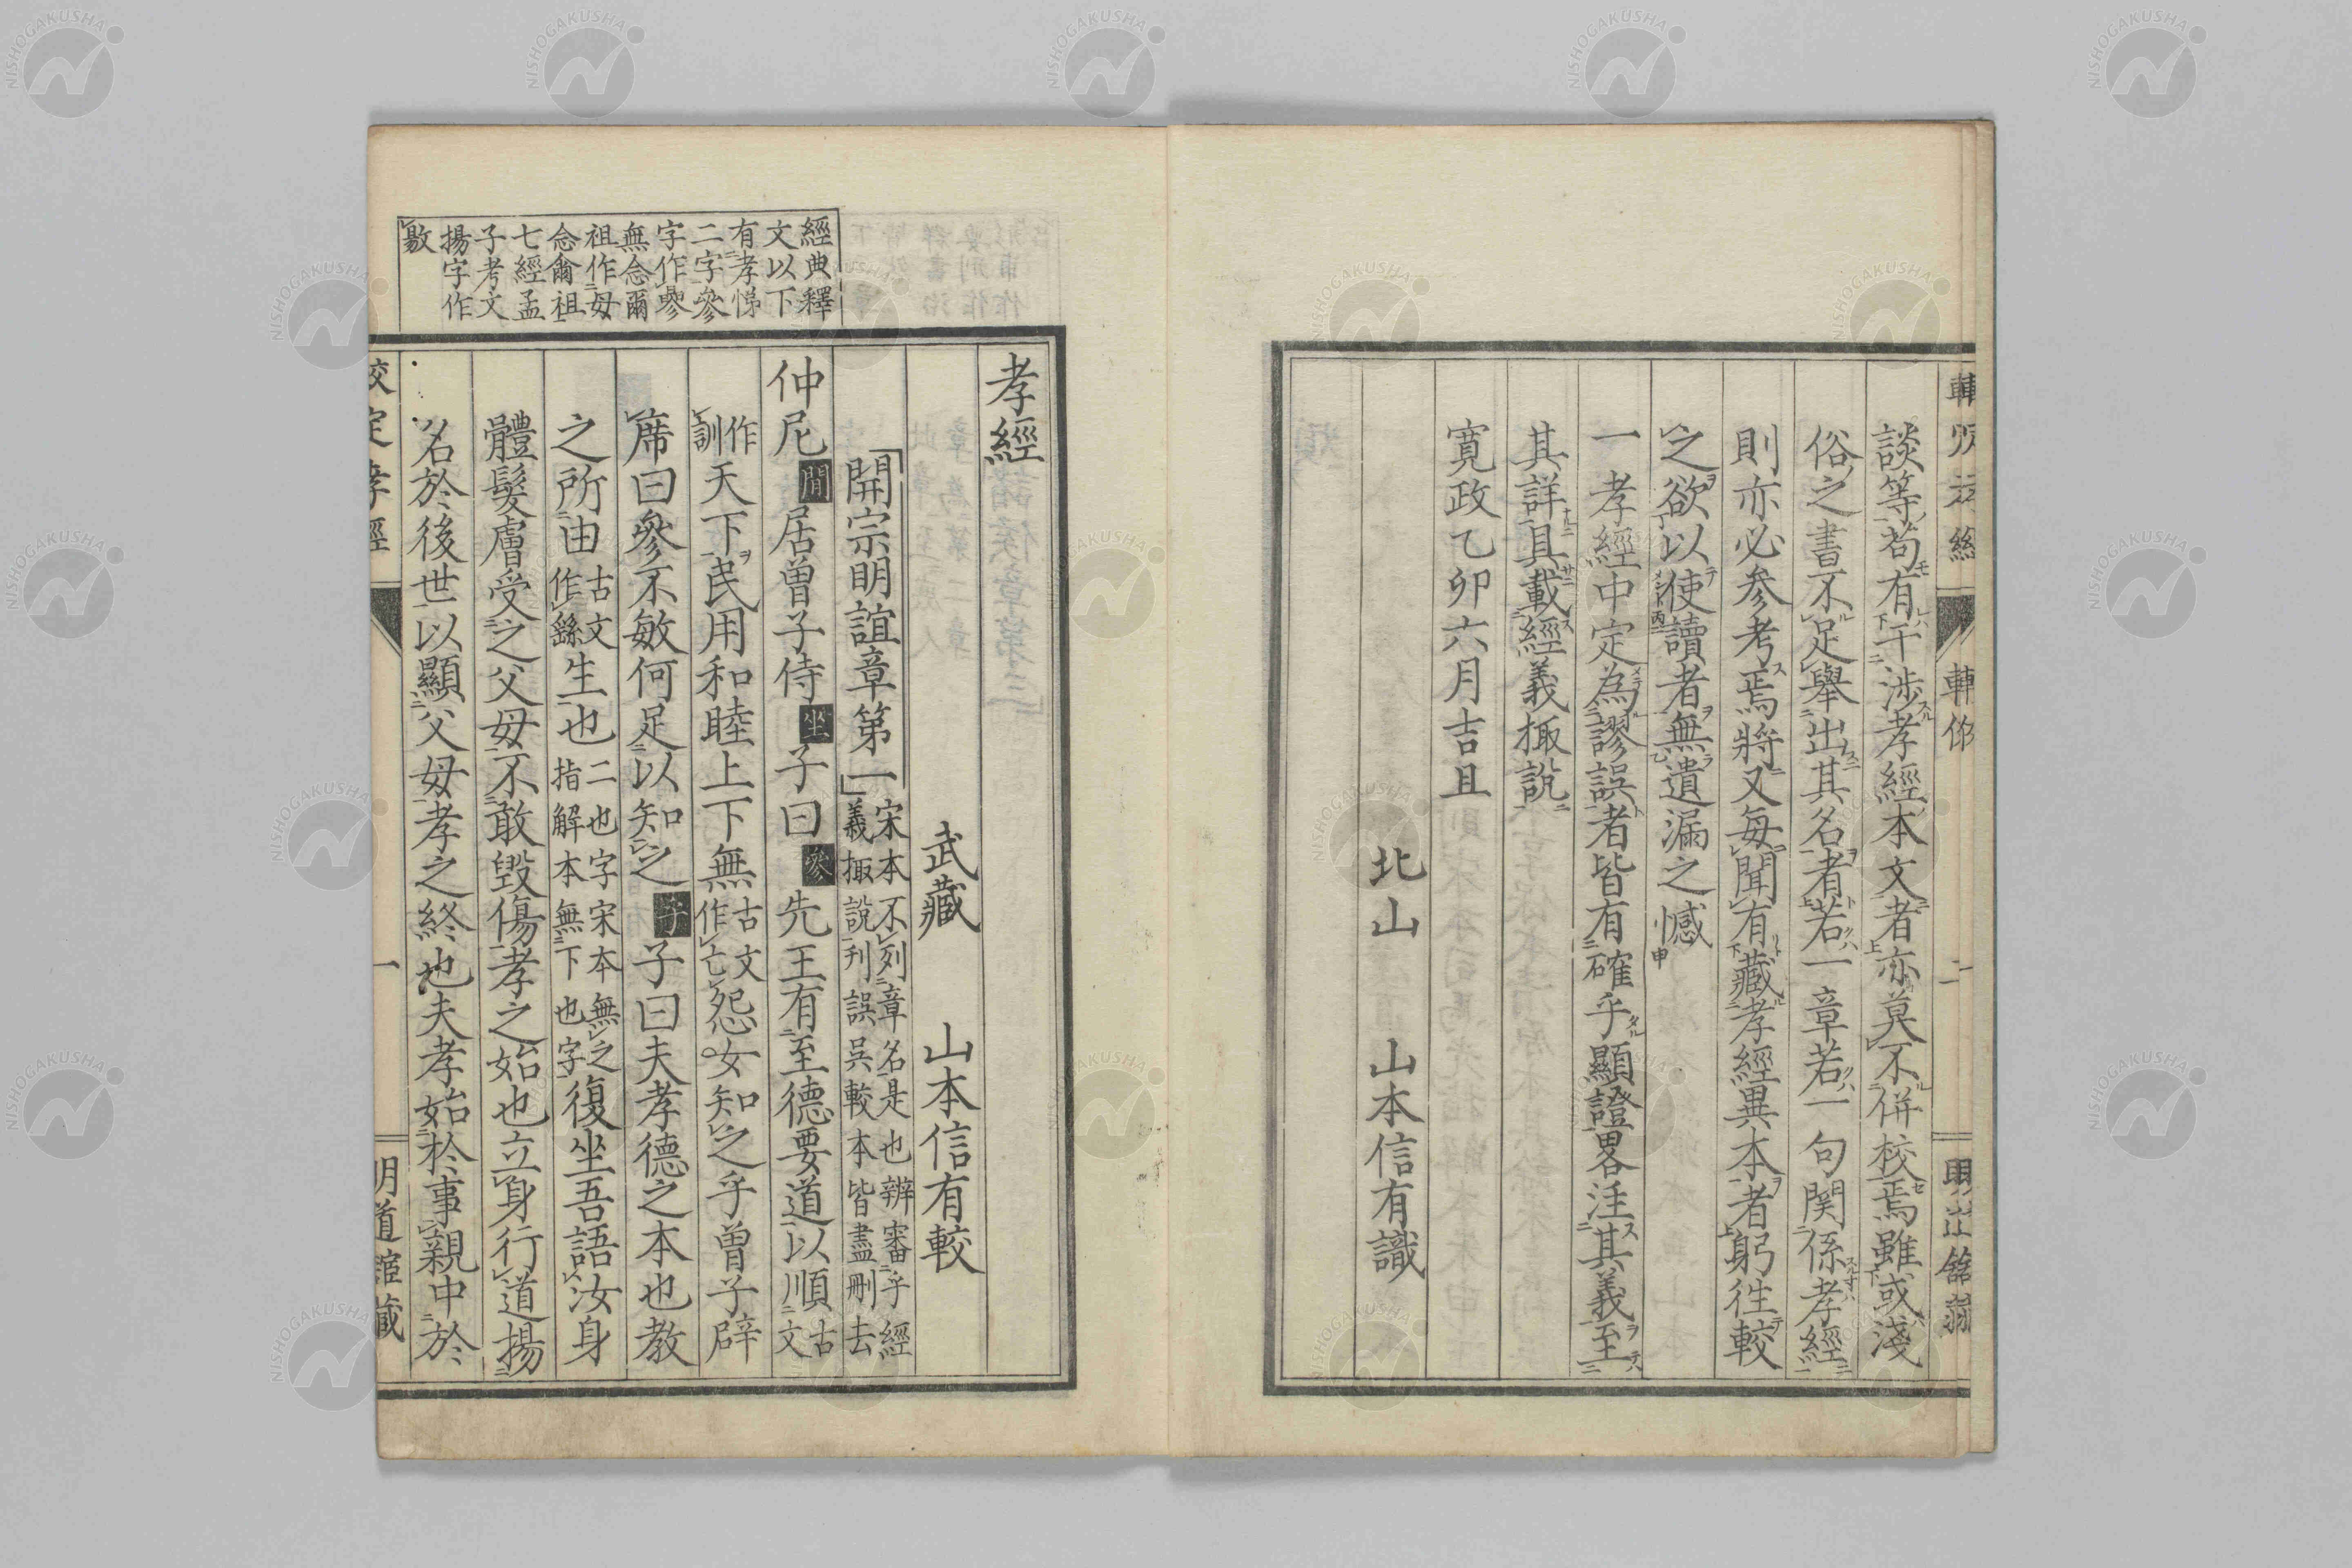 談等苟有干涉孝經本文者亦莫不併校焉雖或淺
俗之書不足舉出其名者若一章若一句関係孝經
則亦必參考焉將又每聞有藏孝經異本者躬徃較
之欲以使讀者無遺漏之憾
一孝經中定為謬誤者皆有確乎顯證畧注其義至
其詳具載經義掫說
寛政乙卯六月吉且
北山 山本信有識
經典釋
文以下
有孝悌
二字參
字作㕘
無念爾
祖作毋
念爾祖
七經孟
子考文
揚字作
敭
孝經
武藏 山本信有較
開宗明誼章第一 宋本不列章名是也辨審乎經
義掫說刋誤吳較本皆盡刪去
仲尼閒居曾子侍坐子曰參先王有至德要道以順 古文
作訓天下民用和睦上下無 古文作亡 怨女知之乎曾子辟
席曰參不敏何足以知之子子曰夫孝德之本也教
之所由 古文作繇 生也 二也字宋本無之指解本無下也字 復坐吾語汝身
體髮膚受之父母不敢毀傷孝之始也立身行道揚
名於後世以顯父母孝之終也夫孝始於事親中於
校定孝經 一 明道館藏
NISHOGAKUSHA